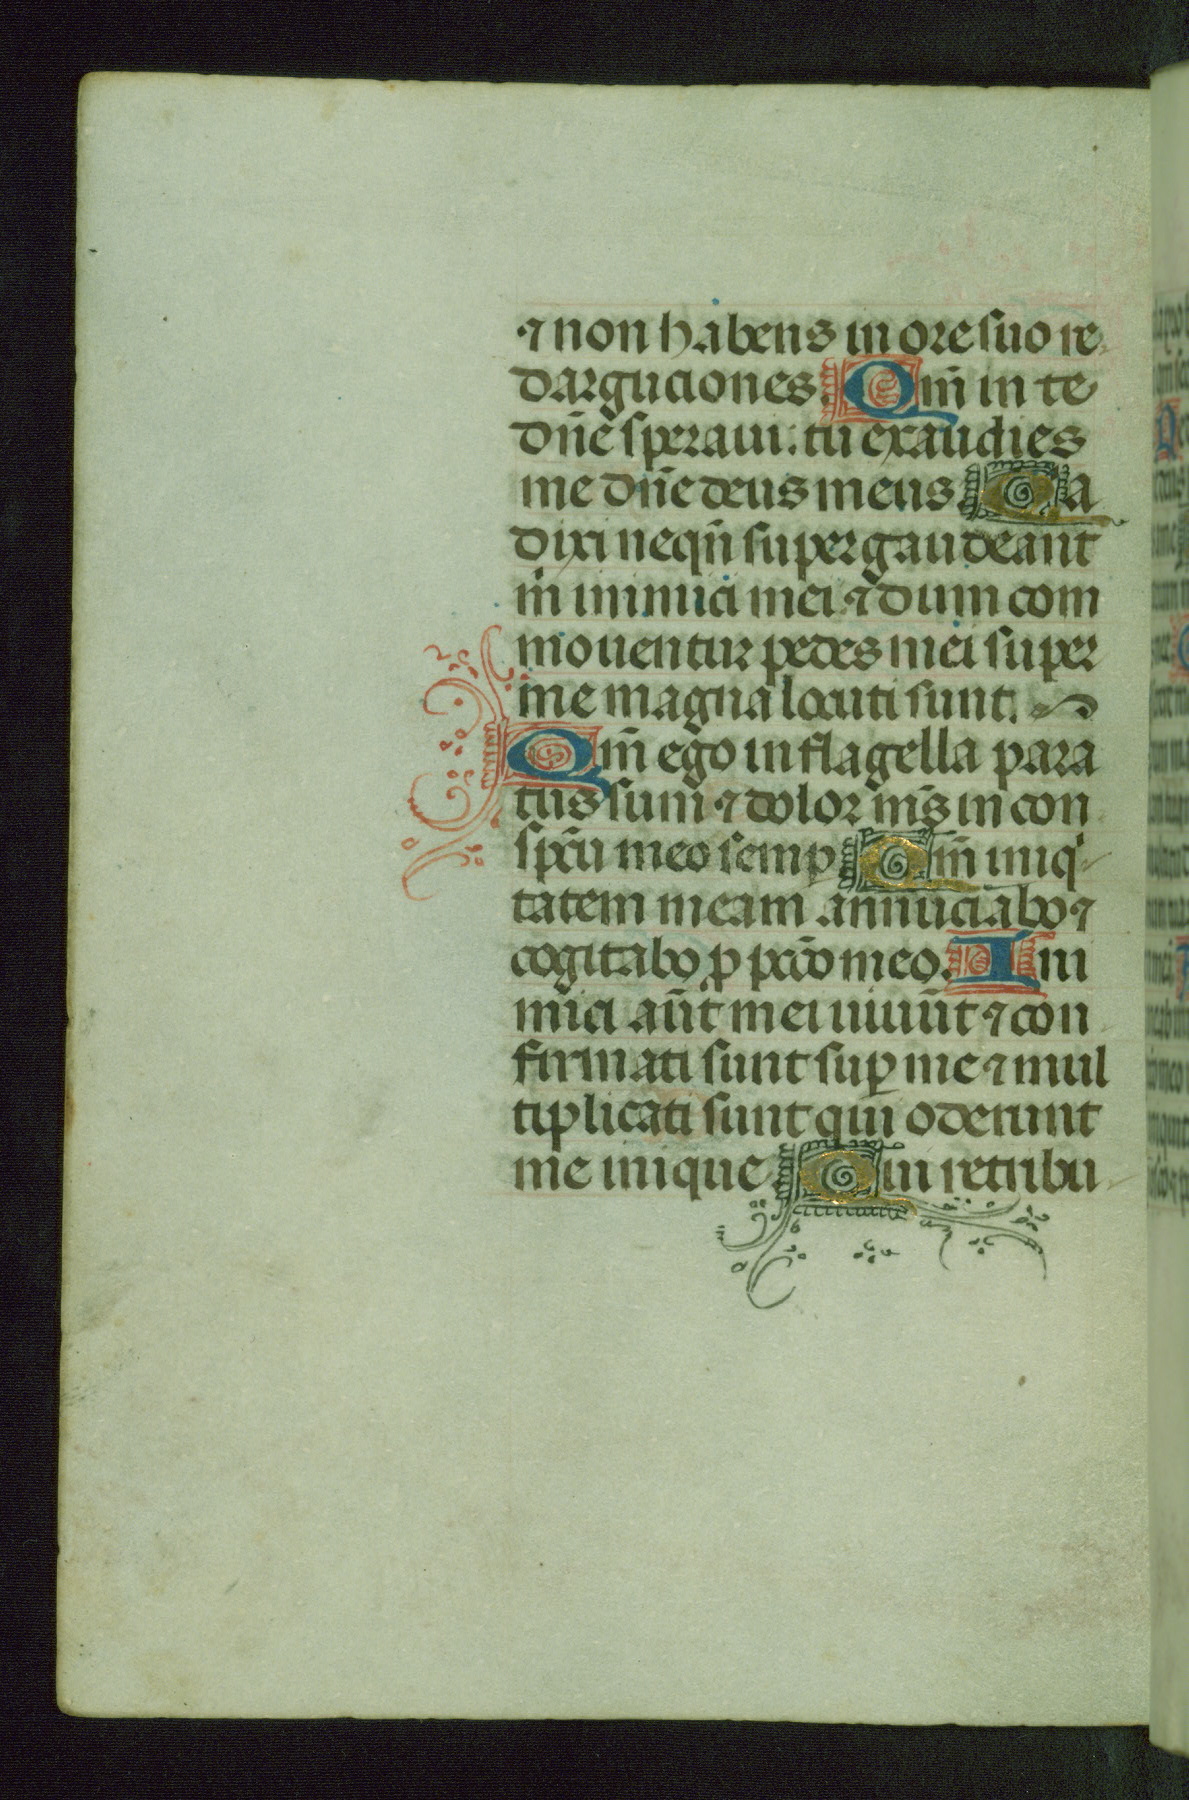 ⁊ non habens in ore suo re
darguciones. Qm̄ in te
dn̄e speraui: tu exaudies
me dn̄e deus meus. Qa
dixi nequn̄ supergaudeant
m̄ inimici mei ⁊ dum com
mouentur pedes mei super
me magna locuti sunt.
Qm̄ ego in flagella para
tus sum ⁊ dolor ms̄ in con
spc̄u meo semp̄. Qm̄ iniq
tatem meam annūciabo ⁊
cogitabo p̱ pcc̄o meo. Ini
mici aūt mei uiuūt ⁊ con
firmati sunt sup̱ me ⁊ mul
tiplicati sunt qui oderunt
me inique. Qui retribu